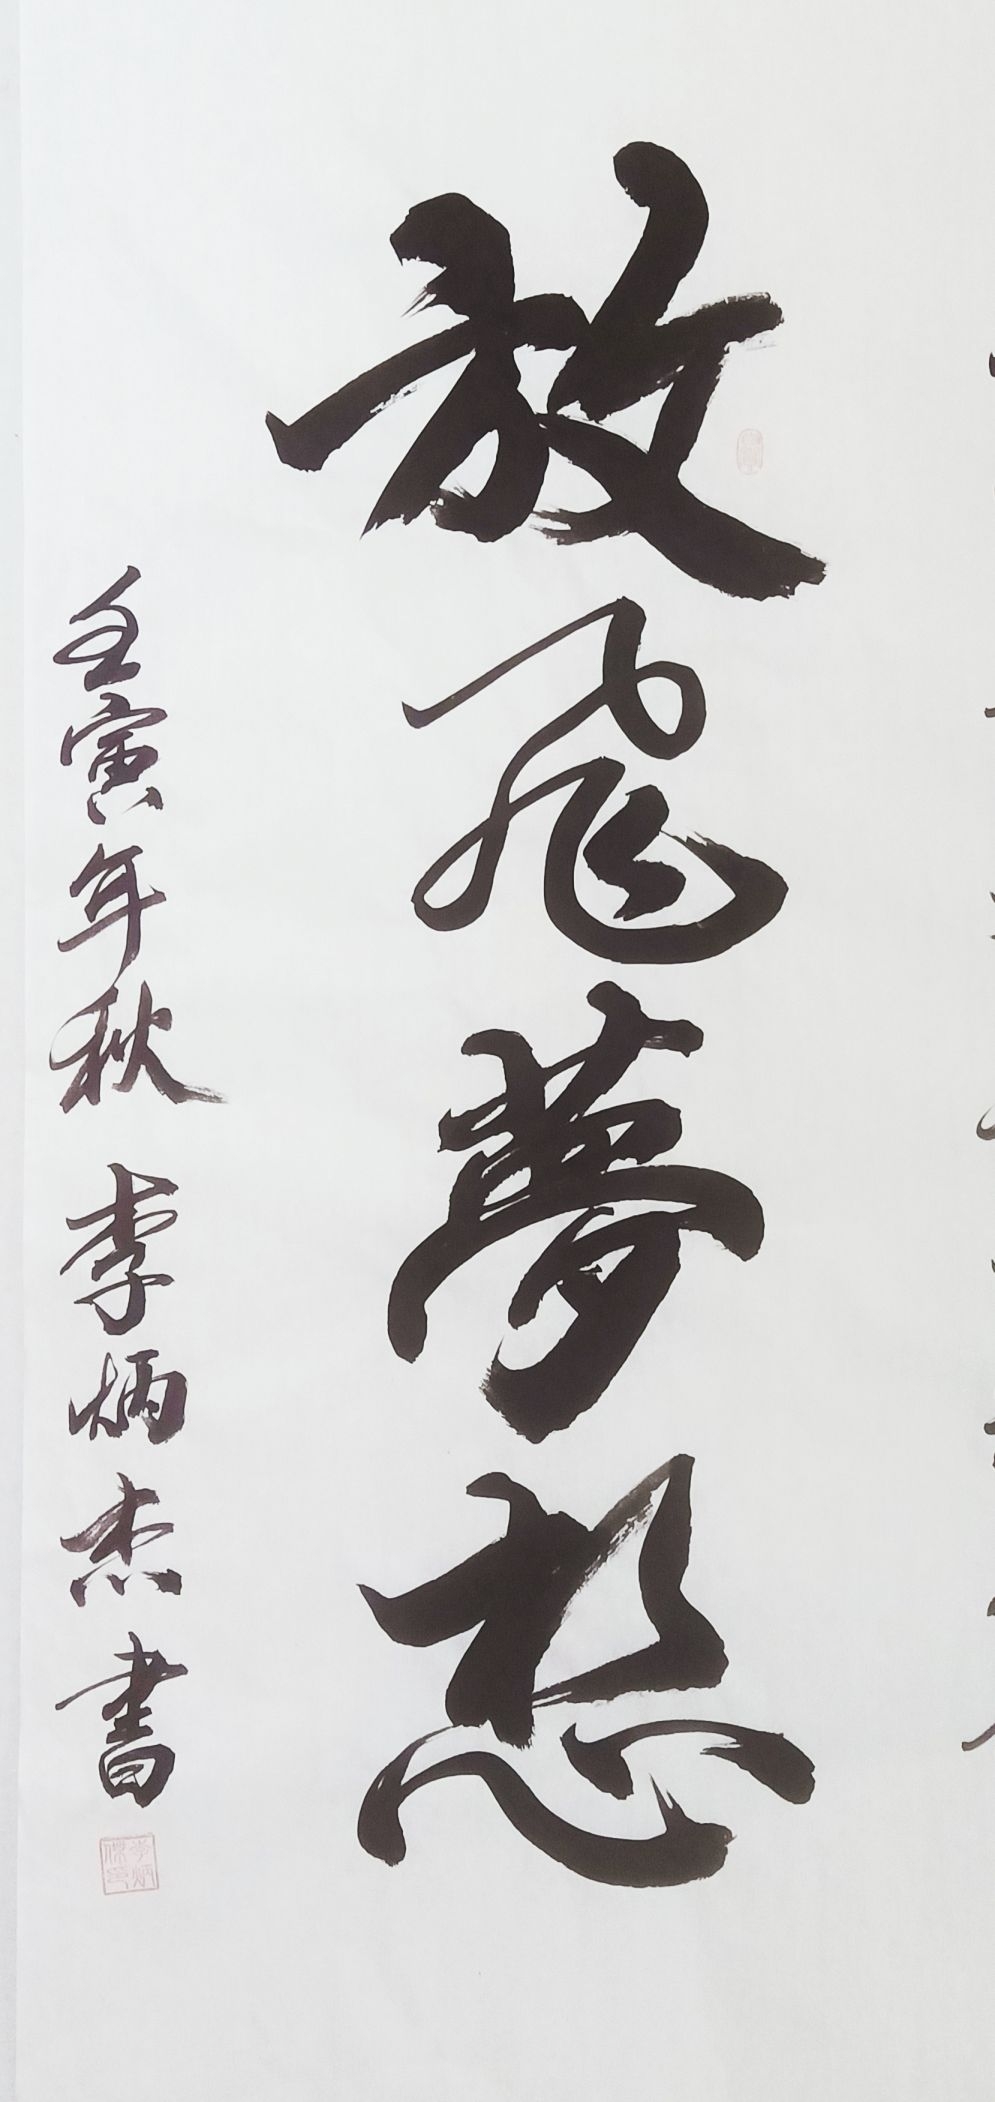 放飛夢想
壬寅年秋 李炳杰書